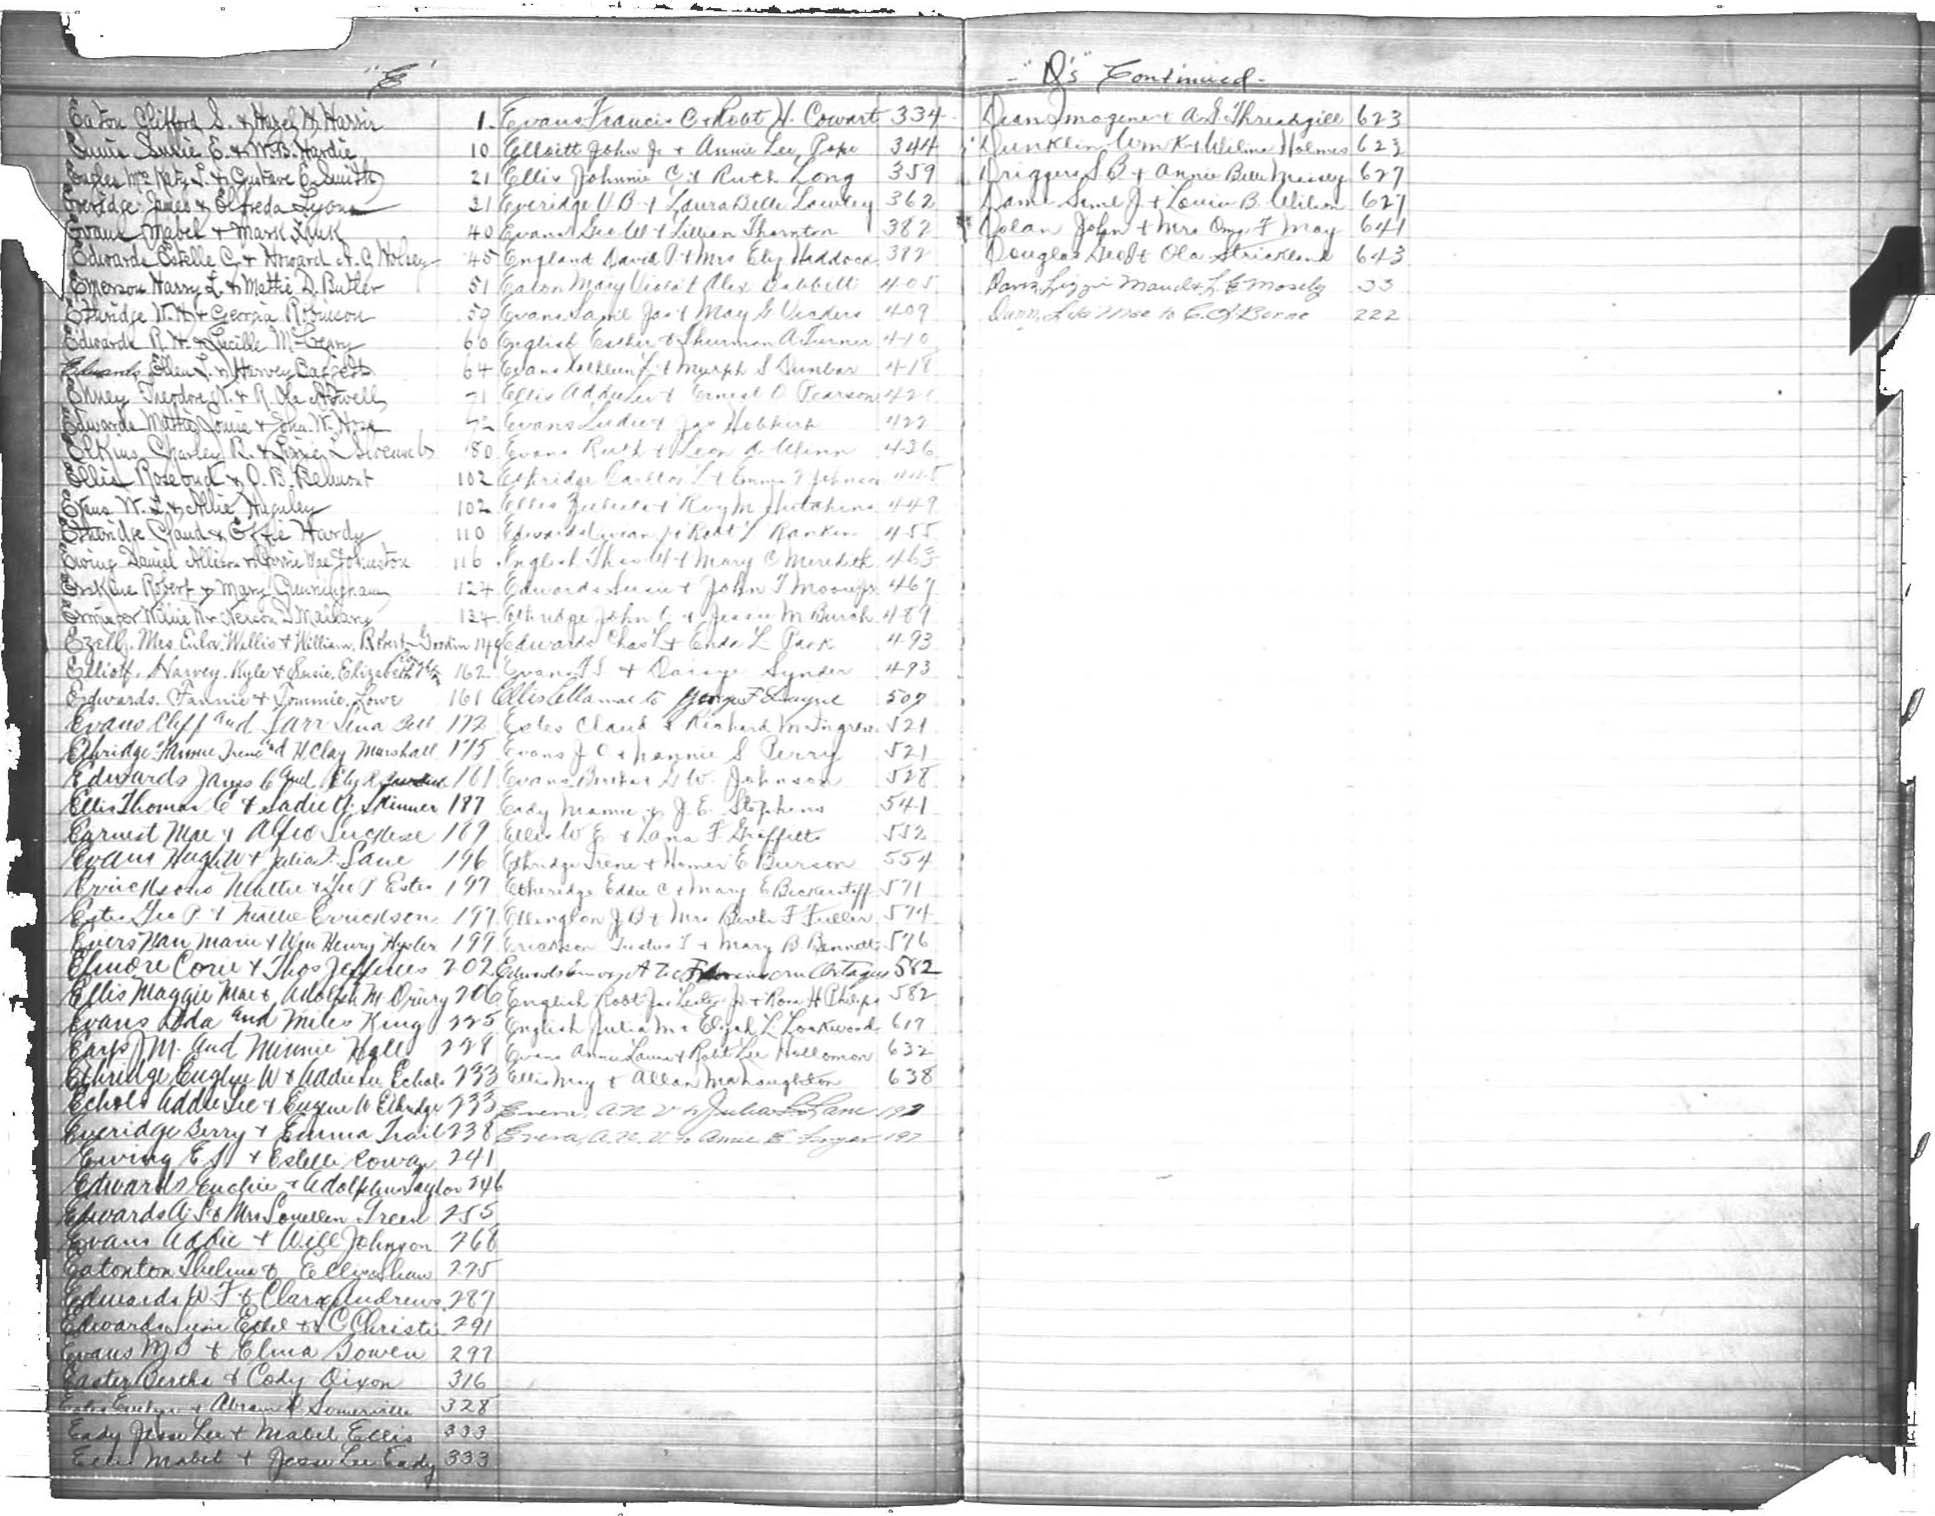 "E"
Eaton Clifford S. & Hazel H. Harris 1.
Susie E. & W.B. Hardie 10
L. & Gustave E. Smith 21
Everidge James & Elfreda Lyons 21
Evans Mabel & Mark 40
Edwards Estelle C. & Howard A. C. 45
Emerson Harry L. & Mattie D. Butler 51
Ethridge W.H. & Georgia Robinson 59
Edwards R. H. & Lucille McCrary 60
Edwards Ellen L. & Harvey 64
Theodore N. & R. Ola 71
Edwards Mattie Louise & Jno. W. 72
Elkins Charley R. & 80
Ellis Rosebud & O. B. Belmont 102
W. L. & Allie Huguley 102
Etheridge Claud & Effie Hardy 110
Ewing Daniel Allison & Mae Johnston 116
Erskine Robert & Mary Cunningham 124
Willie R & D. 134
Ezell, Mrs Eula, Willis & William, Robert Goodin 149
Elliott, Harvey, Kyle & Susie, Elizabeth 162
Edwards, Fannie & Tommie, Lowe 161
Evans Cliff and Tarr Lena Bell 172
Ethridge Fannie Irene and H. Clay Marshall 175
Edwards James C and 161
Ellis Thomas C & Sadie Y. Skinner 187
Earnest Mae & Alfred 189
Evans Hugh W & Julia F. Lane 196
Ericksons Mattie & Geo P Estes 197
Estes Geo P. & Mattie Erickson 197
Evers Nan Marie & Wm Henry Hysler 199
Elmore Corie & Thos Jeffries 202
Ellis Maggie Mae & Adolph M. Drury 206
Evans Ada and Miles King 225
Earps J M. and Minnie Hall 228
Ethridge Eugene W & Addie Lee Echols 233
Echols Addie Lee & Eugene W Ethridge 233
Everidge Berry & Emma Trail 238
Ewing E J & Estelle Cowan 241
Edwards & Adolphus Taylor 246
Edwards A. S & Mrs Louellen Green 255
Evans Addie & Will Johnson 268
Eatonton Thelma & Ellis 275
Edwards W. F & Clara Andrews 287
Edwards Ethel & C Christi 291
Evans M B & Elma Bowen 297
Easter Bertha & Cody Dixon 316
Estes Evelyn & Abram Somerville 328
Eady Jesse Lee & Mabel Ellis 333
Ellis Mabel & Jesse Lee Eady 333
Evans Francis C & Robt H. Cowart 334
Elloitt John Jr & Annie Lee Pope 344
Ellis Johnnie C & Ruth Long 359
Everidge V B & Laura Belle Lawley 362
Evans Geo W & Lillian Thornton 382
England David P & Mrs Eliz Haddock 382
Eaton Mary Viola & Alex Dabbitt 405
Evans Saml Jas & May G 409
English Esther & Thurman A Turner 410
Evans Kathleen L & Murph S Dunbar 418
Ellis Addie Lee & Ernest O Pearson 421
Evans Ludie & Jas 422
Evans Ruth & Leon A Winn 436
Etheridge Carlton L & Emma J Johnson 445
Ellis & Roy M Hutchins 449
Edwards & Robt L Rankin 455
English Thos W & Mary C Meredith 463
Edwards Susie & John T Moon Jr 467
Ethridge John C & Jessie M Burch 489
Edwards Chas L & Enda L Park 493
Evans T S & Daisye Synder 493
Ellis Ella mae to George F Layne 507
Estes Claud & Richard M Ingram 521
Evans J O & Nannie S Perry 521
Evans G W Johnson 528
Eady Mamie & J. E. Stephens 541
Ellis W E & Lana F Graffitts 552
Ethridge Irene & Homer E Bierson 554
Etheridge Eddie C & Mary E Bickerstaff 571
Ellington J B & Mrs F Fuller 574
Erickson T & Mary B Bennett 576
Edwards Emory A to 582
English Robt Jas Lester Jr. & Rosa H Philips 582
English Julia M & Elijah L Lockwood 617
Evans Annie Laura & Robt Lee Hollomon 632
Ellis May & Allan McNaughton 638
Evens, A. N. V to Julia L. Lane 197
Evera, A. N. V. to Annie E. 197
- "D's" Continued -
Dean Imogene & A. S. Threadgill 623
Dunklin Wm K & Wilma Holmes 623
Driggers S B & Annie Belle Massey 627
Dame Saml J & Louise B. Wilson 627
Dolan John & Mrs Oma F May 641
Douglas Geo & Ola Strickland 643
Davis Lizzie Maud & L. E Mosely 33
Dunn, Lila Mae to C. 222